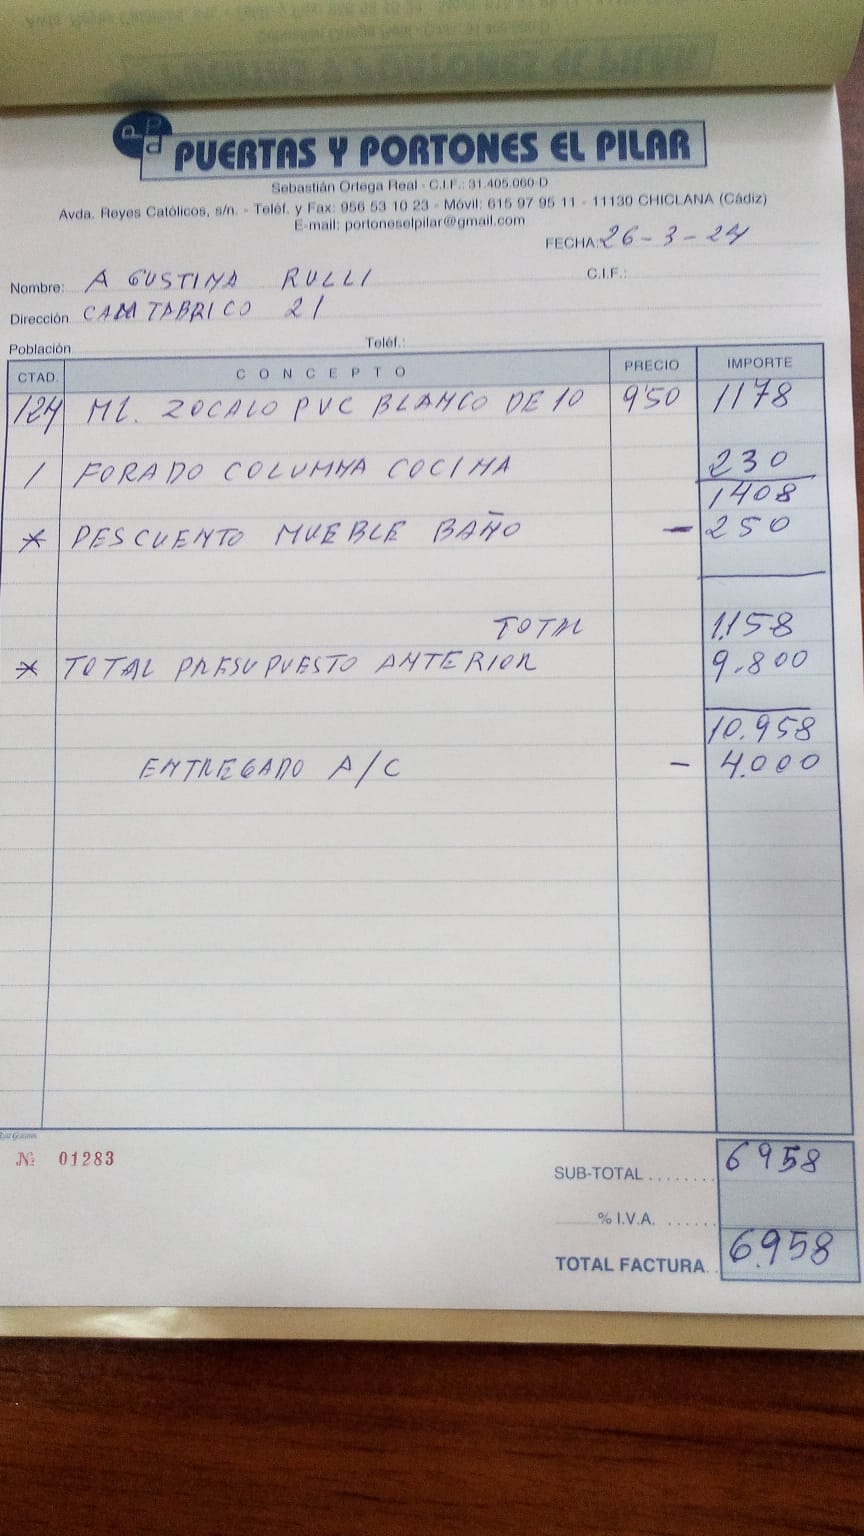 PUERTAS Y PORTONES EL PILAR
Sebastián Ortega Real - C.I.F.: 31.405.060-D
Avda. Reyes Católicos, s/n. - Teléf. y Fax: 956 53 10 23 - Móvil: 615 97 95 11 - 11130 CHICLANA (Cádiz)
E-mail: portoneselpilar@gmail.com
FECHA: 26-3-24
Nombre: AGUSTINA RULLI C.I.F.:
Dirección CANTABRICO 21
Población Teléf.:
CTAD. CONCEPTO PRECIO IMPORTE
124 ML. ZOCALO PVC BLANCO DE 10 9'50 1178
1 FORADO COLUMNA COCINA 230
1408
* DESCUENTO MUEBLE BAÑO - 250
TOTAL 1.158
* TOTAL PRESUPUESTO ANTERIOR 9.800
10.958
ENTREGADO A/C - 4.000
Nº 01283
SUB-TOTAL ........ 6958
% I.V.A. ......
TOTAL FACTURA.. 6.958